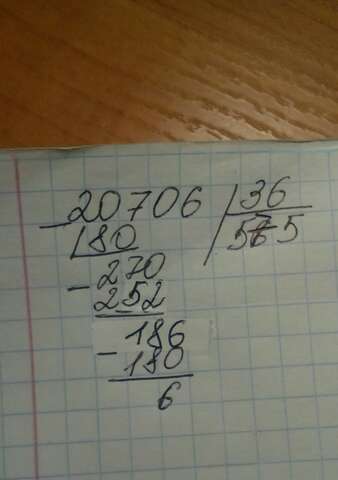 20706 | 36
- 180 | 575
- 270
252
- 186
180
6